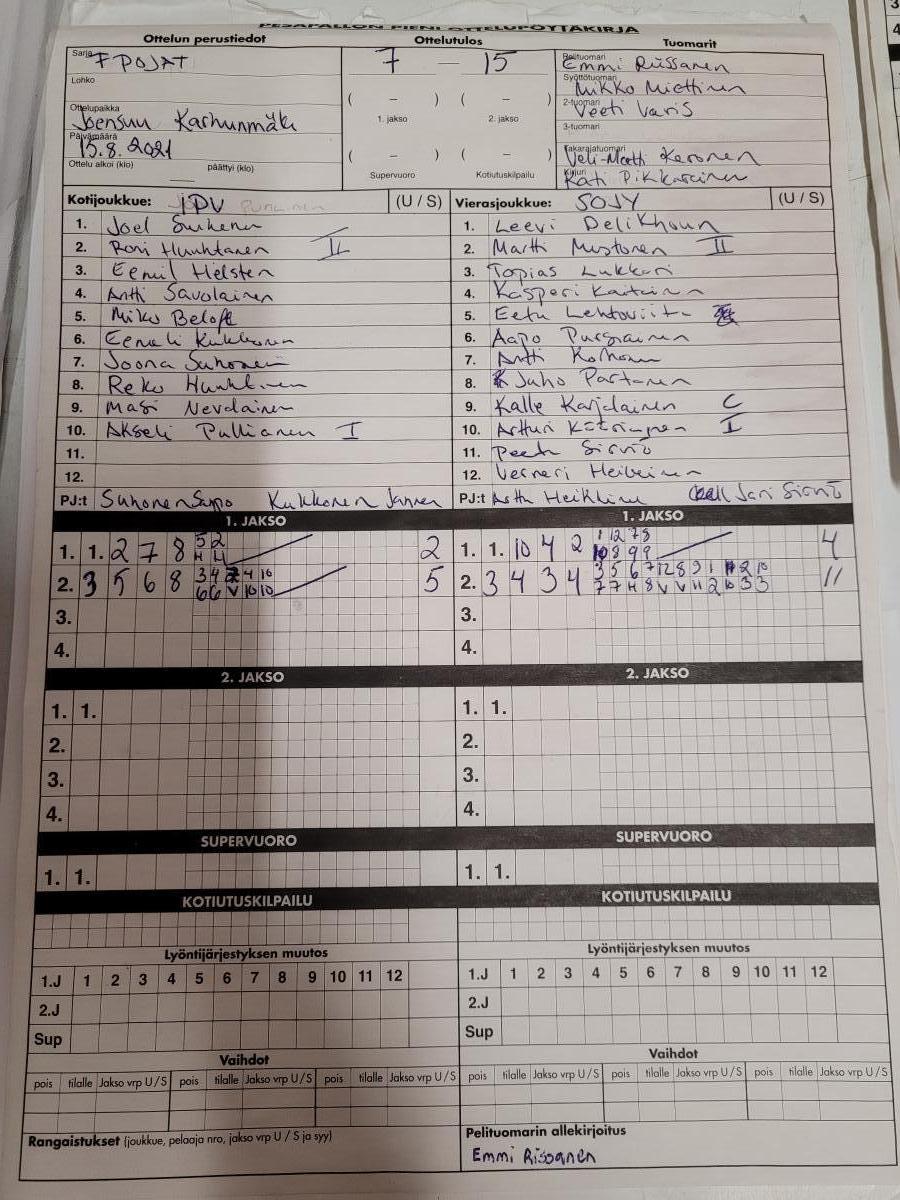 PESÄPALLON PIENI OTTELUPÖYTÄKIRJA
Ottelun perustiedot Ottelutulos Tuomarit
Sarja F POJAT
Lohko
Ottelupaikka Joensuu Karhunmäki
Päivämäärä 15.8.2021
Ottelu alkoi (klo) päättyi (klo)
7 — 15
( – ) ( – )
1. jakso 2. jakso
( – ) ( – )
Supervuoro Kotiutuskilpailu
Pelituomari Emmi Rissanen
Syöttötuomari Mikko Miettinen
2-tuomari Veeti Varis
3-tuomari
Takarajatuomari Veli-Matti Keronen
Kirjuri Kati Pikkarainen
Kotijoukkue: JPV Punainen (U / S)
1. Joel Surkena
2. Roni Huuhtanen II
3. Eemil Helsten
4. Antti Savolainen
5. Miko Beloff
6. Eemeli Kukkonen
7. Joona Suhonen
8. Reko
9. Masi Nevalainen
10. Akseli Pullianen I
11.
12.
PJ:t Suhonen Seppo Kukkonen Janne
Vierasjoukkue: SOJY (U / S)
1. Leevi Delikhoun
2. Martti Mustonen II
3. Topias Lukkari
4. Kasperi Kaitainen
5. Eetu Lehtoviita
6. Aapo Purmainen
7. Antti Korhonen
8. Juho Partanen
9. Kalle Karjalainen C
10. Artturi I
11. Peetu Sirviö
12. Verneri Heikkinen
PJ:t Arttu Heikkinen Jari Sirviö
1. JAKSO 1. JAKSO
1. 1. 2 7 8 5 2 2
H 4
2. 3 5 6 8 3 4 4 10 5
6 6 V 10 10
3.
4.
1. 1. 10 4 2 1 12 7 8 4
10 8 9 9
2. 3 4 3 4 3 5 6 7 12 8 9 1 2 10 11
7 7 H 8 V V 11 2 10 3 3
3.
4.
2. JAKSO 2. JAKSO
1. 1. 1. 1.
2. 2.
3. 3.
4. 4.
SUPERVUORO SUPERVUORO
1. 1. 1. 1.
KOTIUTUSKILPAILU KOTIUTUSKILPAILU
Lyöntijärjestyksen muutos Lyöntijärjestyksen muutos
1.J 1 2 3 4 5 6 7 8 9 10 11 12 1.J 1 2 3 4 5 6 7 8 9 10 11 12
2.J 2.J
Sup Sup
Vaihdot Vaihdot
pois tilalle Jakso vrp U/S pois tilalle Jakso vrp U/S pois tilalle Jakso vrp U/S pois tilalle Jakso vrp U/S pois tilalle Jakso vrp U/S pois tilalle Jakso vrp U/S
Rangaistukset (joukkue, pelaaja nro, jakso vrp U / S ja syy)
Pelituomarin allekirjoitus
Emmi Rissanen